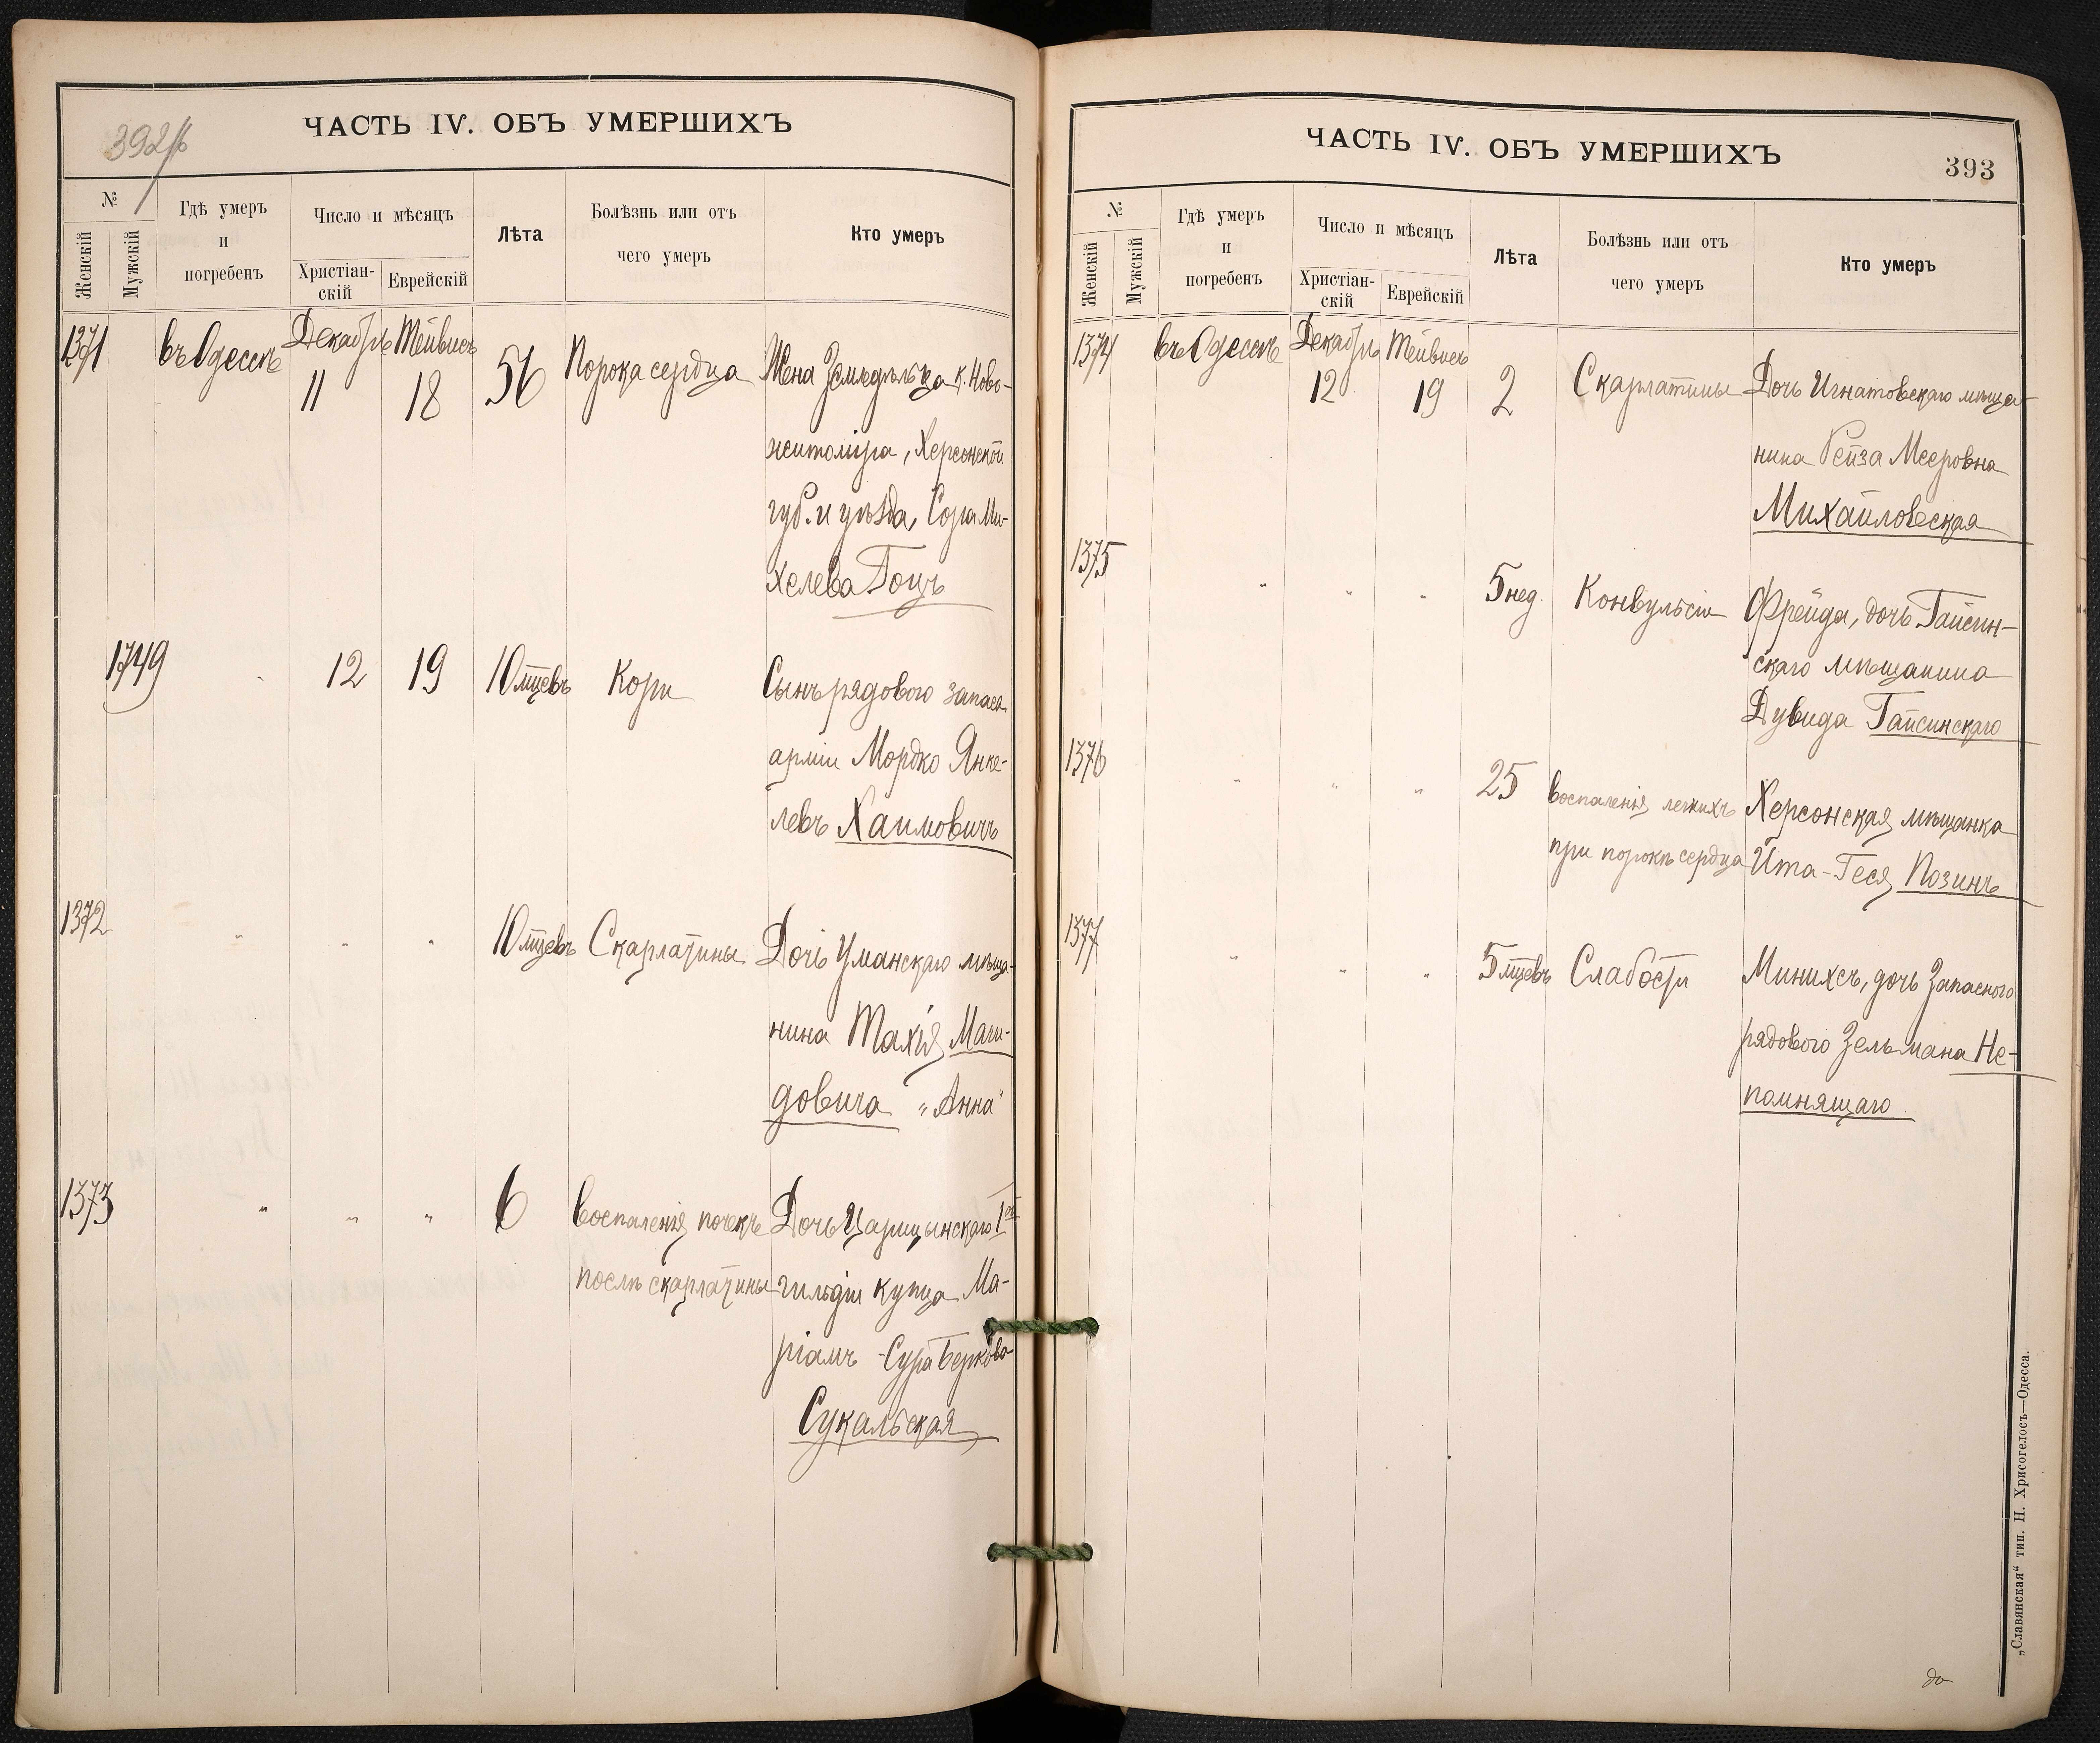 392/б
ЧАСТЬ IV. ОБЪ УМЕРШИХЪ
№
Женскій
Мужскій
Гдѣ умеръ
и
погребенъ
Число и мѣсяцъ
Христіан-
скій
Еврейскій
Лѣта
Болѣзнь или отъ
чего умеръ
Кто умеръ
1371 въ Одессѣ Декабрь 11 Тейвисъ 18 56 Порока сердца Жена Земледѣльца к. Ново-
житоміра, Херсонской
губ. и уѣзда, Сора Ми-
хелева Гоцъ
1749 " 12 19 10 мцевъ Кори Сынъ рядового запаса
арміи Мордко Янке-
левъ Хаимовичъ
1372 " " " 10 мцевъ Скарлатины Дочь Уманскаго мѣща-
нина Махія Маги-
довича „Анна"
1373 " " " 6 Воспаленія почекъ Дочь Царицынскаго 1ой
послѣ скарлатины гильдіи купца Ма-
ріамъ - Сура Беркова
Сукальская
ЧАСТЬ IV. ОБЪ УМЕРШИХЪ
393
№
Женскій
Мужскій
Гдѣ умеръ
и
погребенъ
Число и мѣсяцъ
Христіан-
скій
Еврейскій
Лѣта
Болѣзнь или отъ
чего умеръ
Кто умеръ
1374 въ Одессѣ Декабрь 12 Тейвисъ 19 2 Скарлатины Дочь Игнатовскаго мѣща-
нина Рейза Мееровна
Михайловская
1375 " " " 5 нед. Конвульсіи Фрейда, дочь Гайсин-
скаго мѣщанина
Дувида Гайсинскаго
1376 " " " 25 Воспаленія легкихъ Херсонская мѣщанка
при порокѣ сердца Ита-Геся Позинъ
1377 " " " 5 мцевъ Слабости Минихсъ, дочь Запасного
рядового Зельмана Не-
помнящаго
„Славянская" тип. Н. Хрисогелосъ—Одесса.